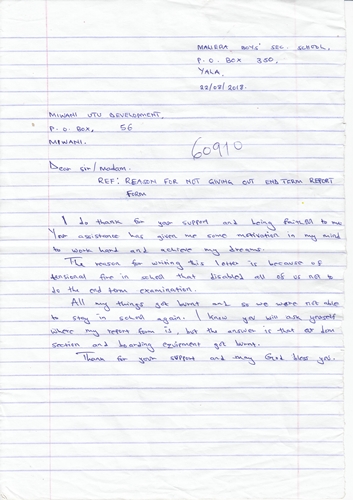 MALIERA BOYS' SEC. SCHOOL,
P. O. BOX 350,
YALA.
22/07/2018.
MIWANI UTU DEVELOPMENT,
P. O. BOX, 56
MIWANI.
60910
Dear sir/madam.
REF: REASON FOR NOT GIVING OUT END TERM REPORT
FORM
I do thank for your support and being faithful to me
Your assistance has given me some motivation in my mind
to work hard and achieve my dreams.
The reason for writing this letter is because of
fire in school that disabled all of us not to
do the end term examination.
All my things got burnt and so we were not able
to stay in school again. I know you will ask yourself
where my report form is, but the answer is that at dom
section and boarding equipment got burnt.
Thank for your support and may God bless you.